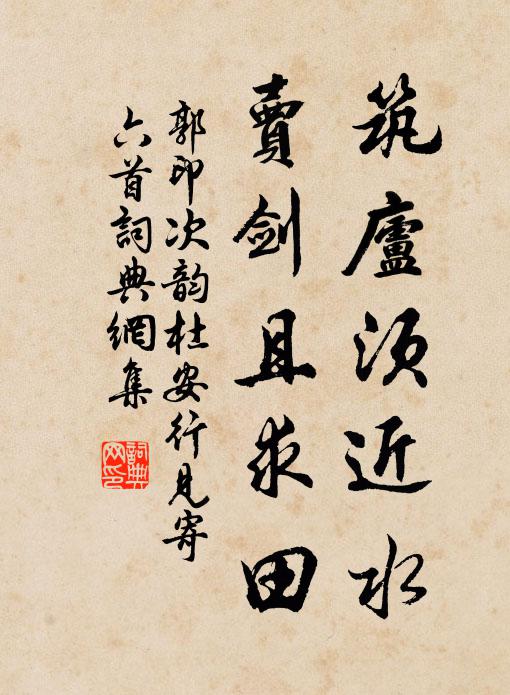 筑廬须近水
賣劍且求田
郭印次韵杜安行見寄
六首詞典網集
詞典
网印